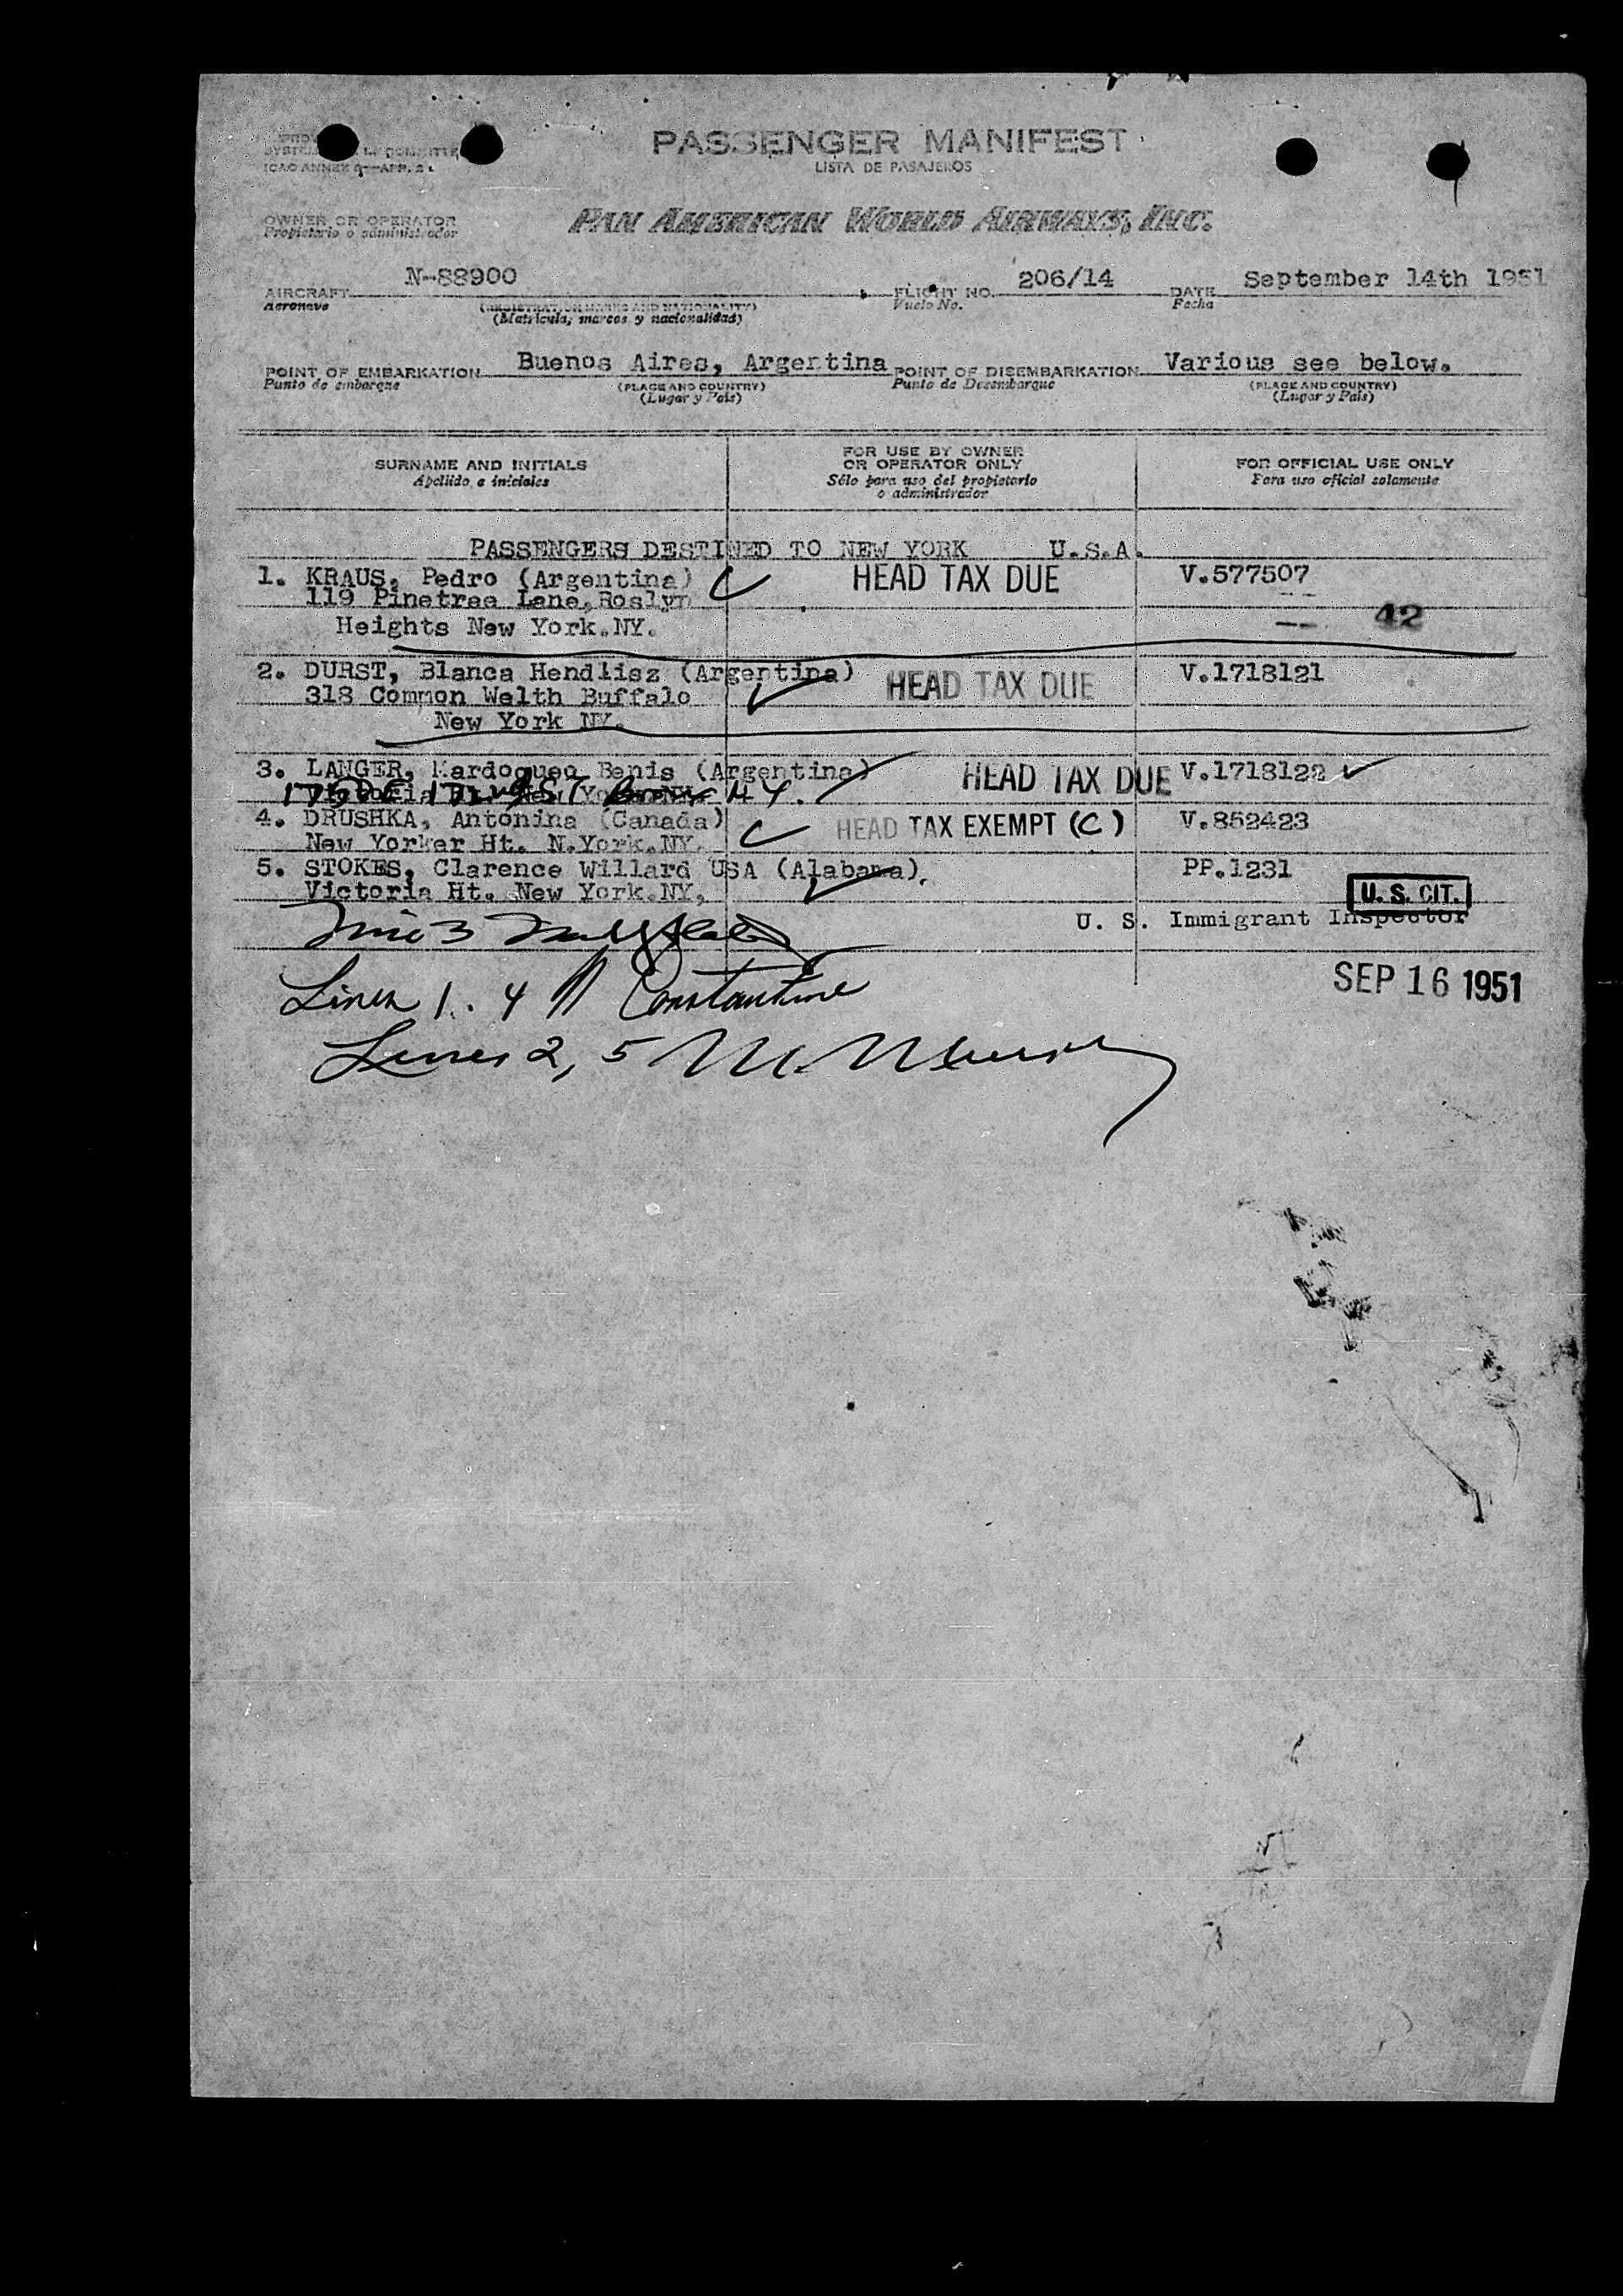 PASSENGER MANIFEST
LISTA DE PASAJEROS
ICAO ANNEX 9—APP. 2
OWNER OR OPERATOR
Propietario o administrador
PAN AMERICAN WORLD AIRWAYS, INC.
AIRCRAFT N-88900 FLIGHT NO. 206/14 DATE September 14th 1951
Aeronave Vuelo No. Fecha
(REGISTRATION MARKS AND NATIONALITY)
(Matricula, marcos y nacionalidad)
POINT OF EMBARKATION Buenos Aires, Argentina POINT OF DISEMBARKATION Various see below.
Punto de embarque (PLACE AND COUNTRY) Punto de Desembarque (PLACE AND COUNTRY)
(Lugar y País) (Lugar y País)
SURNAME AND INITIALS
Apellido e iniciales
FOR USE BY OWNER
OR OPERATOR ONLY
Sólo para uso del propietario
o administrador
FOR OFFICIAL USE ONLY
Para uso oficial solamente
PASSENGERS DESTINED TO NEW YORK U.S.A.
1. KRAUS, Pedro (Argentina) HEAD TAX DUE V.577507
119 Pinetree Lane, Roslyn
Heights New York.NY. 42
2. DURST, Blanca Hendlisz (Argentina) HEAD TAX DUE V.1718121
318 Common Welth Buffalo
New York NY.
3. LANGER, Mardoqueo Benis (Argentina) HEAD TAX DUE V.1718122
N.Y.
4. DRUSHKA, Antonina (Canada) HEAD TAX EXEMPT (C) V.852423
New Yorker Ht. N.York.NY.
5. STOKES, Clarence Willard USA (Alabama). PP.1231
Victoria Ht. New York.NY,
U. S. CIT.
U. S. Immigrant Inspector
Line 3
SEP 16 1951
Lines 1. 4 Constantine
Lines 2, 5